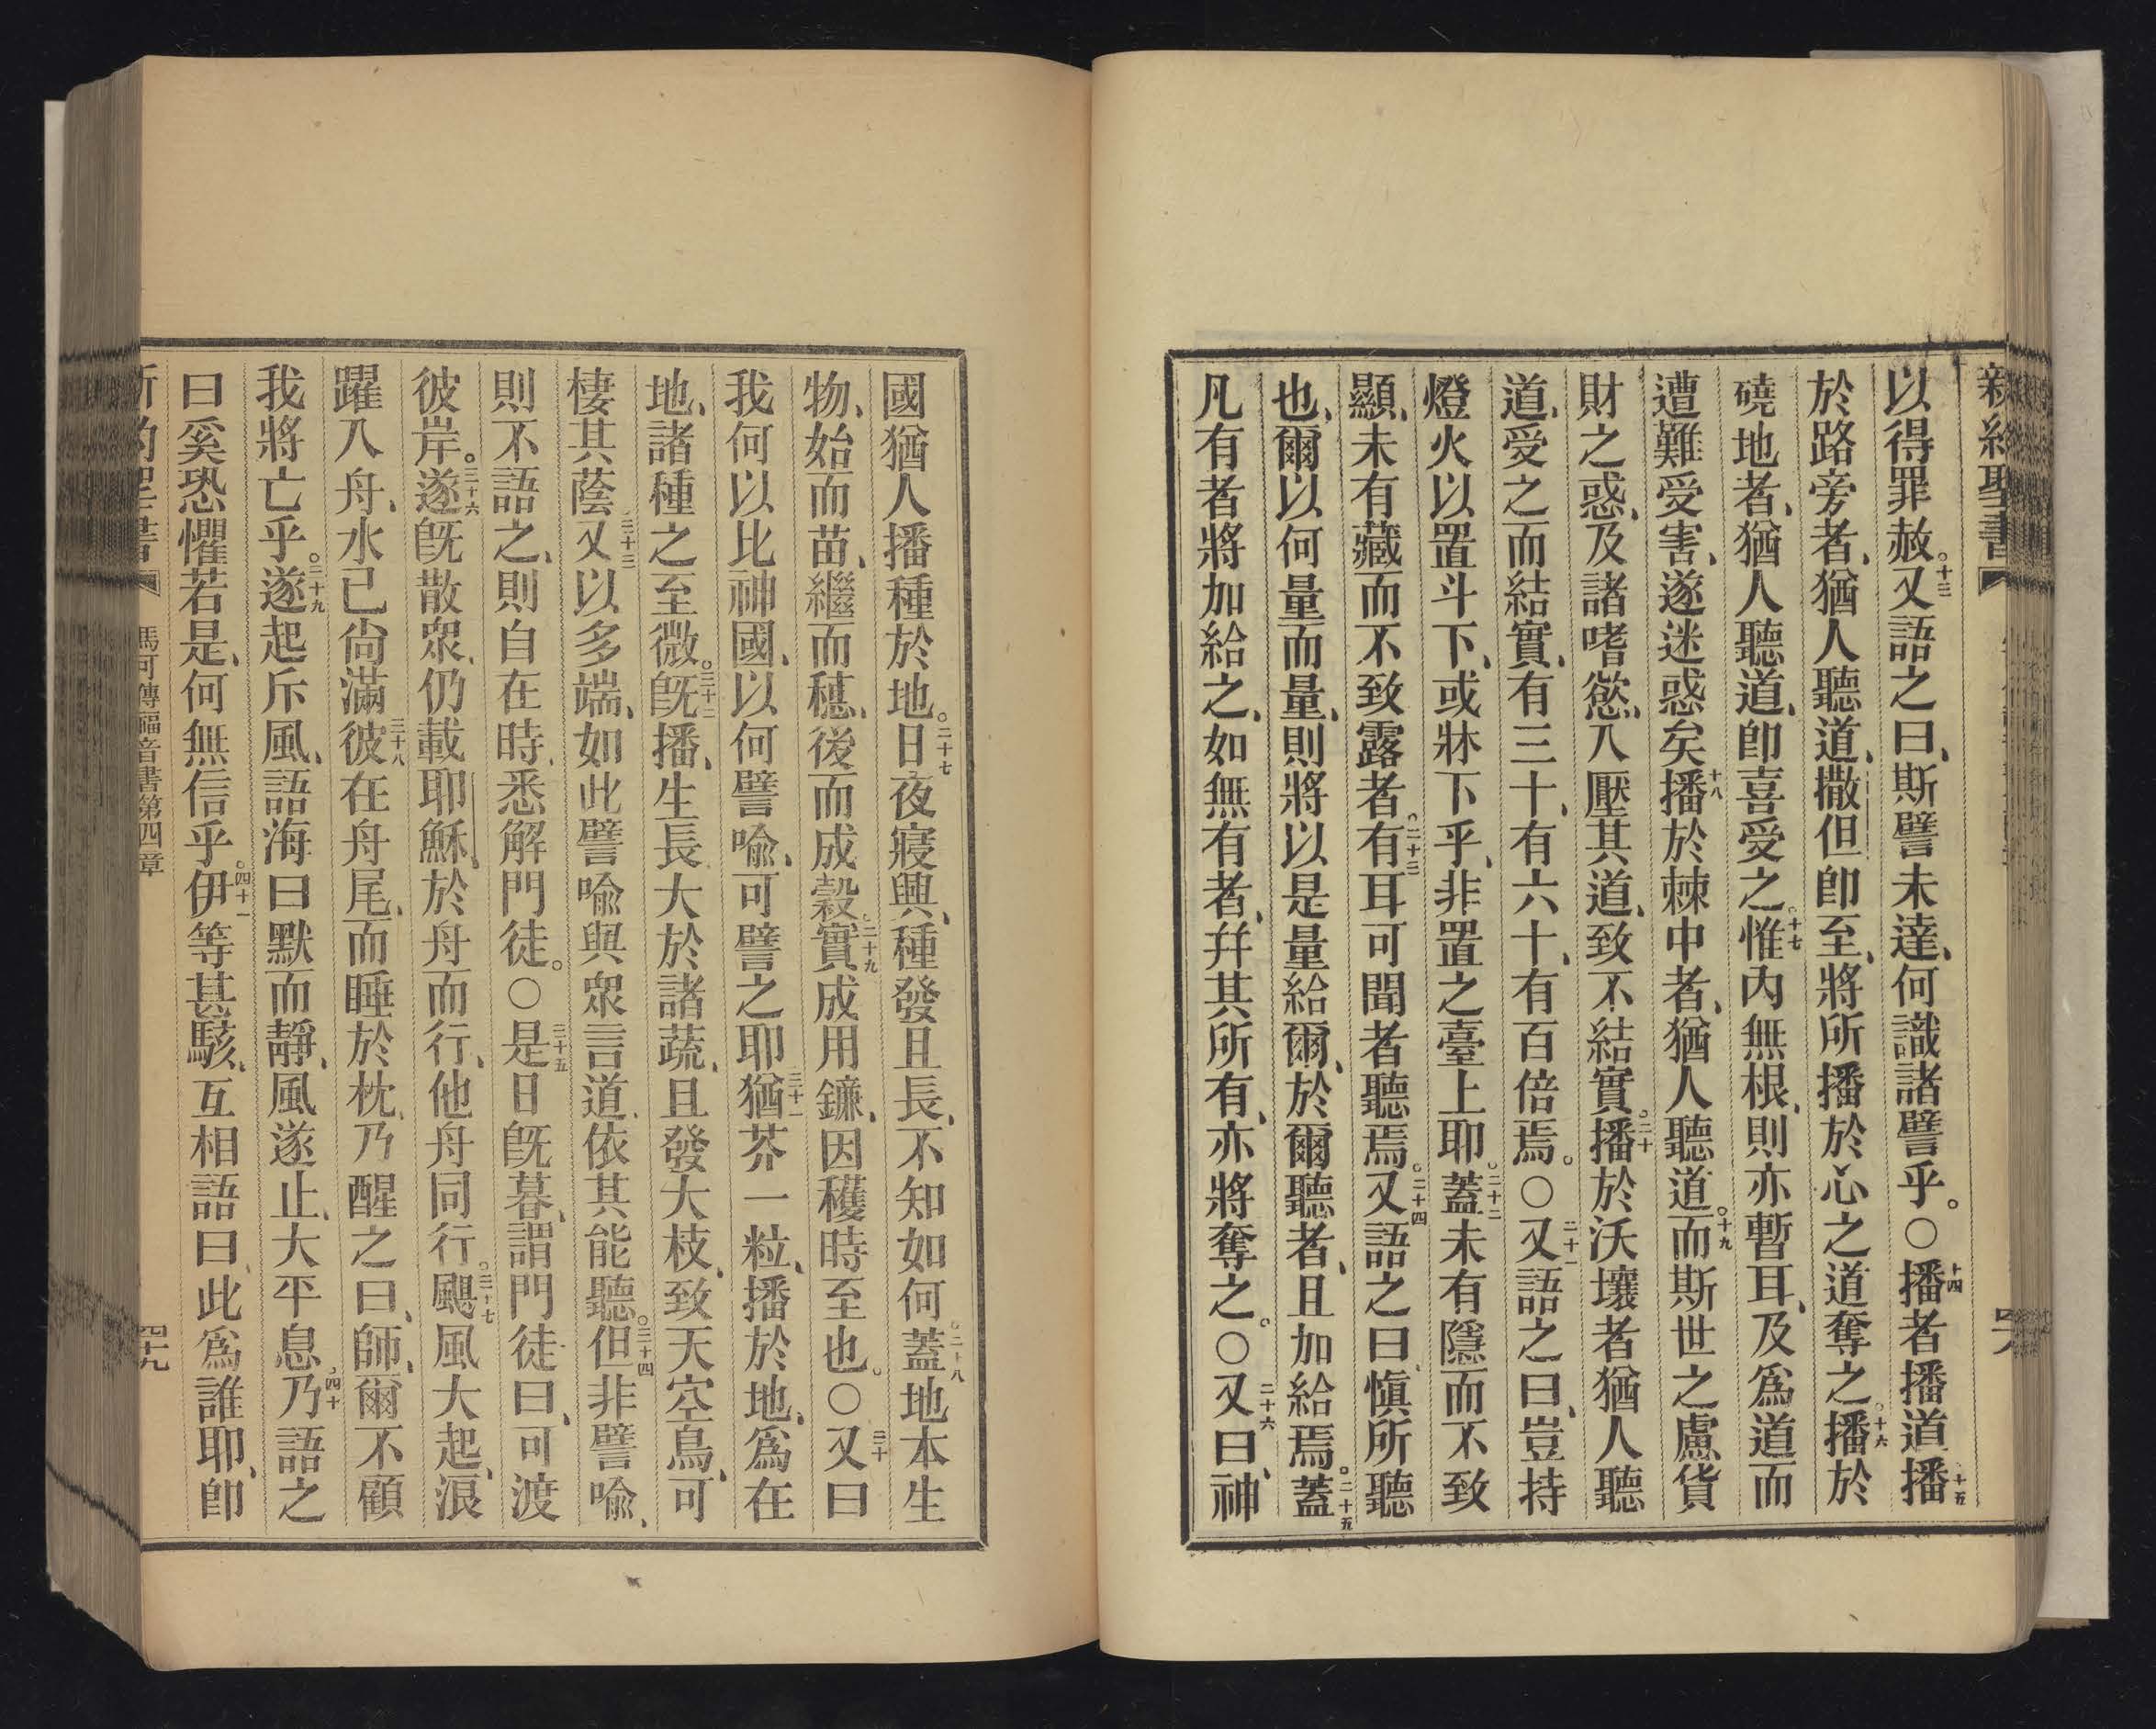 新約聖書
以得罪赦。十三又語之曰、斯譬未達、何識諸譬乎。〇十四播者播道、十五播
於路旁者、猶人聽道、撒但卽至、將所播於心之道奪之。十六播於
磽地者、猶人聽道、卽喜受之。十七惟內無根、則亦暫耳、及爲道而
遭難受害、遂迷惑矣十八播於棘中者、猶人聽道。十九而斯世之慮貨
財之惑、及諸嗜慾、入壓其道、致不結實。二十播於沃壤者猶人聽
道、受之而結實、有三十、有六十、有百倍焉。〇二十一又語之曰、豈持
燈火以置斗下、或牀下乎、非置之臺上耶。二十二蓋未有隱而不致
顯、未有藏而不致露者。二十三有耳可聞者聽焉。二十四又語之曰、愼所聽
也、爾以何量而量、則將以是量給爾、於爾聽者、且加給焉。二十五蓋
凡有者將加給之、如無有者、幷其所有、亦將奪之。〇二十六又曰、神
國猶人播種於地。二十七日夜寢興、種發且長、不知如何。二十八蓋地本生
物、始而苗、繼而穗、後而成穀。二十九實成用鐮、因穫時至也。〇三十又曰
我何以比神國、以何譬喩、可譬之耶三十一猶芥一粒、播於地、爲在
地、諸種之至微。三十二旣播、生長大於諸蔬、且發大枝、致天空鳥、可
棲其蔭、三十三又以多端、如此譬喩與衆言道、依其能聽。三十四但非譬喩、
則不語之、則自在時、悉解門徒。〇三十五是日旣暮、謂門徒曰、可渡
彼岸。三十六遂旣散衆、仍載耶穌、於舟而行、他舟同行。三十七颶風大起、浪
躍入舟、水已尙滿三十八彼在舟尾、而睡於枕、乃醒之曰、師、爾不顧
我將亡乎。三十九遂起斥風、語海曰默而靜、風遂止、大平息。四十乃語之
曰奚恐懼若是、何無信乎。四十一伊等甚駭、互相語曰、此爲誰耶、卽
新約聖書 馬可傳福音書第四章 四十九